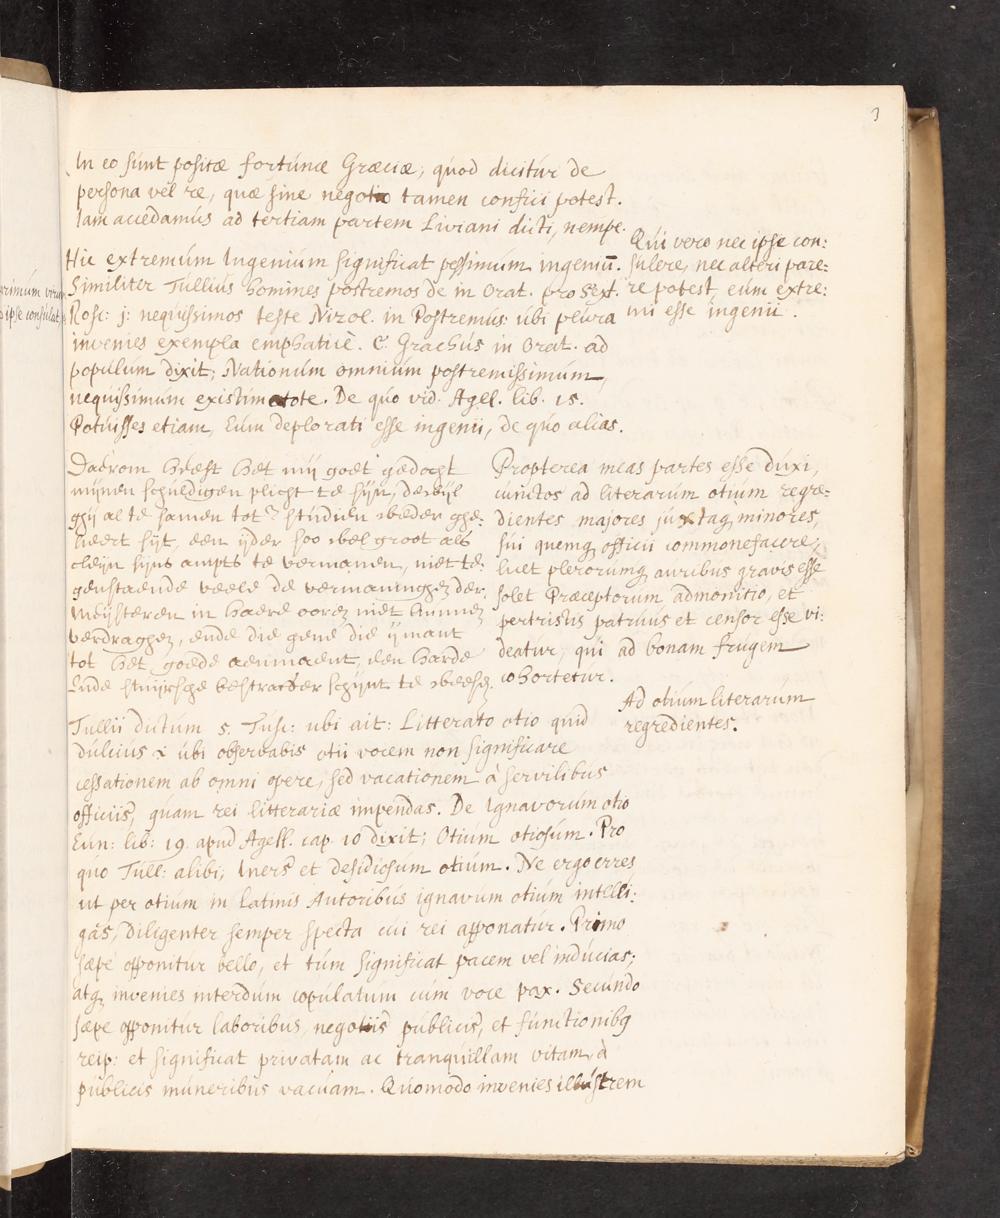 3
In eo sunt positæ fortunæ Græciæ, quod dicitur de
persona vel re, quæ sine negotio tamen confici potest.
Iam accedamus ad tertiam partem Liviani dicti, nempe.
Qui vero nec ipse con:
sulere, nec alteri pare:
re potest, eum extre:
mi esse ingenii.
Hic extremum Ingenium significat pessimum ingeniū.
Similiter Tullius homines postremos de in Orat. pro Sext.
Rosc: j: nequissimos teste Nizol. in Postremus: ubi plura
invenies exempla emphaticè. C. Grachus in Orat. ad
populum dixit; Nationum omnium postremissimum,
nequissimum existimatote. De quo vid. Agel. lib. 15.
Potuisses etiam, Eum deplorati esse ingenii, de quo alias.
Daerom heeft het mij goet gedocht
mijnen schuldigen plicht te sijn, dewijl
ghij al te samen tot studien weder ghe:
keert sijt, een ijder soo wel groot als
cleijn sijns ampts te vermanen, niet te:
genstaende veele de vermaninghen der
Meijsteren in haere ooren niet kunnen
verdraghen, ende die gene die ijmant
tot het goede aenmaent, een harde
Ende stuijrsche bestraffer schijnt te weesen.
Propterea meas partes esse duxi,
cunctos ad literarum otium regre:
dientes majores juxtaq minores,
sui quemq officii commonefacere,
licet plerorumq auribus gravis esse
solet Præceptorum admonitio, et
pertristis patruus et censor esse vi:
deatur, qui ad bonam frugem
cohortetur.
Ad otium literarum
regredientes.
Tullii dictum 5. Tusc: ubi ait: Litterato otio quid
dulcius? ubi observabis otii vocem non significare
cessationem ab omni opere, sed vacationem à servilibus
officiis, quam rei litterariæ impendas. De Ignavorum otio
Enn: lib: 19. apud Agell. cap. 10 dixit; Otium otiosum. Pro
quo Tull: alibi; Iners et desidiosum otium. Ne ergo erres
ut per otium in Latinis Autoribus ignavum otium intelli:
gas, diligenter semper specta cui rei apponatur. Primo
sæpe opponitur bello, et tum significat pacem vel inducias;
atq invenies interdum copulatum cum voce pax. Secundo
sæpe opponitur laboribus, negotiis publicis, et functionibq
reip: et significat privatam ac tranquillam vitam, à
publicis muneribus vacuam. Quomodo invenies illustrem